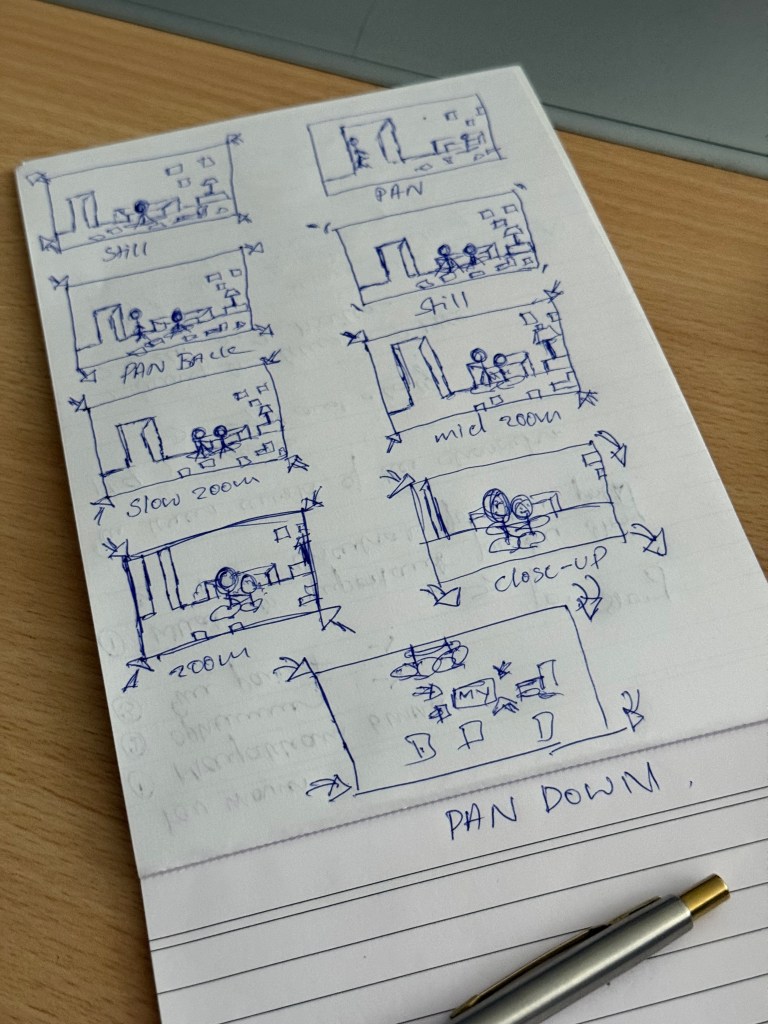 still
PAN
PAN BACK
still
Slow zoom
mid zoom
zoom
close-up
MY
PAN DOWN.